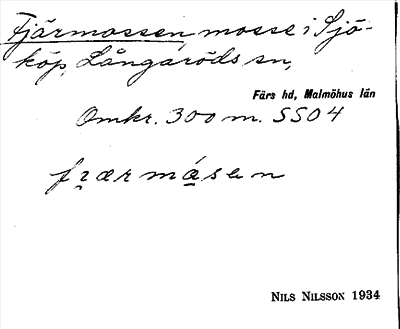 Fjärmossen, mosse i Sjö-
köp, Långaröds sn,
Färs hd, Malmöhus län
Omkr. 300 m. SSO 4
fɹærmásen
NILS NILSSON 1934